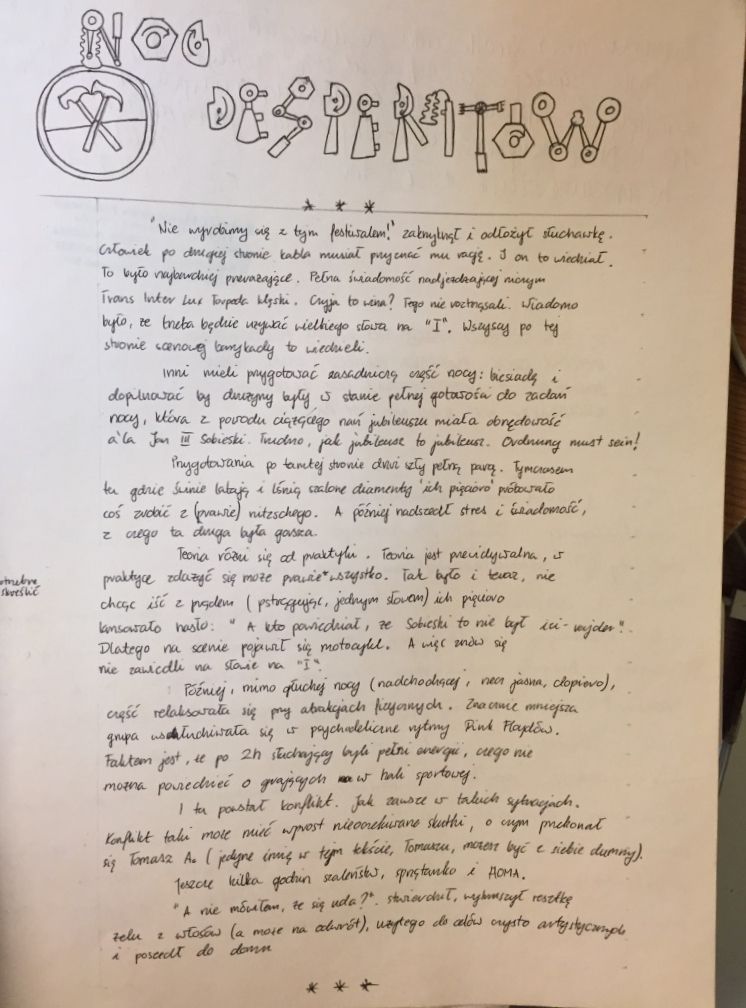 NOC
DESPERATÓW
* * *
"Nie wyrobimy się z tym festiwalem!" zakrzyknął i odłożył słuchawkę.
Człowiek po drugiej stronie kabla musiał przyznać mu rację. I on to wiedział.
To było najbardziej przerażające. Pełna świadomość nadjeżdżającej niczym
Trans Inter Lux Torpeda klęski. Czyja to wina? Tego nie roztrząsali. Wiadomo
było, że trzeba będzie używać wielkiego słowa na "I". Wszyscy po tej
stronie scenowej barykady to wiedzieli.
Inni mieli przygotować zasadniczą część nocy: biesiadę i
dopilnować by drużyny były w stanie pełnej gotowości do zadań
nocy, która z powodu ciążącego nań jubileuszu miała obrzędowość
a'la Jan III Sobieski. Trudno, jak jubileusz to jubileusz. Ordnung must sein!
Przygotowania po tamtej stronie drzwi szły pełną parą. Tymczasem
tu gdzie świnie latają i lśnią szalone diamenty 'ich pięcioro' próbowało
coś zrobić z (prawie) niczego. A później nadszedł stres i świadomość,
z czego ta druga była gorsza.
Teoria różni się od praktyki. Teoria jest przewidywalna, w
praktyce zdarzyć się może prawie* wszystko. Tak było i teraz, nie
*potrzebne
skreślić
chcąc iść z prądem (pstrągując, jednym słowem) ich pięcioro
lansowało hasło: "A kto powiedział, że Sobieski to nie był izi-rajder".
Dlatego na scenie pojawił się motocykl. A więc znów się
nie zawiedli na słowie na "I".
Później, mimo głuchej nocy (nadchodzącej, rzecz jasna, dopiero),
część relaksowała się przy atrakcjach fizycznych. Znacznie mniejsza
grupa wsłuchiwała się w psychodeliczne rytmy Pink Floydów.
Faktem jest, że po 2h słuchający byli pełni energii, czego nie
można powiedzieć o grających w hali sportowej.
I tu powstał konflikt. Jak zawsze w takich sytuacjach.
Konflikt taki może mieć wprost nieoczekiwane skutki, o czym przekonał
się Tomasz A. (jedyne imię w tym tekście, Tomaszu, możesz być z siebie dumny).
Jeszcze kilka godzin szaleństw, sprzątanko i
"A nie mówiłam, że się uda?". stwierdził, wykruszył resztkę
żelu z włosów (a może na odwrót), użytego do celów czysto artystycznych
i poszedł do domu
* * *